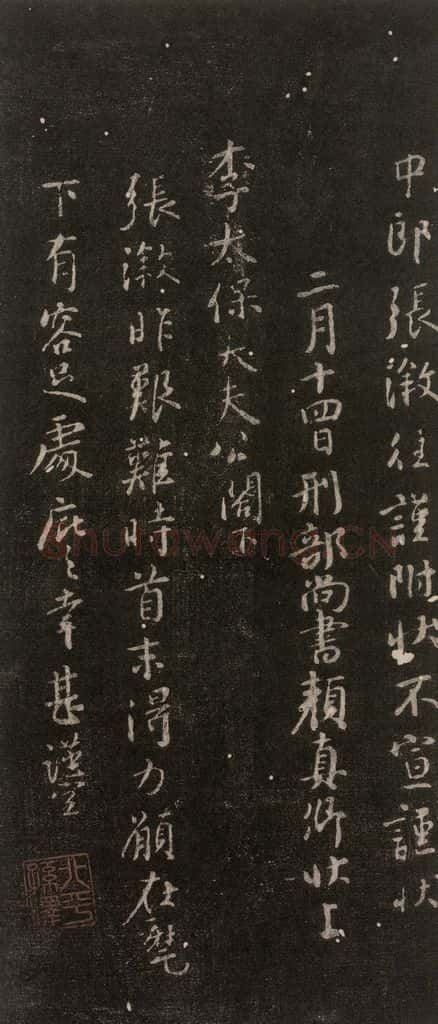 中郎張澂往謹附狀不宣謹狀
二月十四日刑部尚書顏真卿狀上
李太保大夫公閣下
張澂昨艱難時首末得力願在麾
下有容足處庇之幸甚謹空
北平孫澤
Shufawang.CN